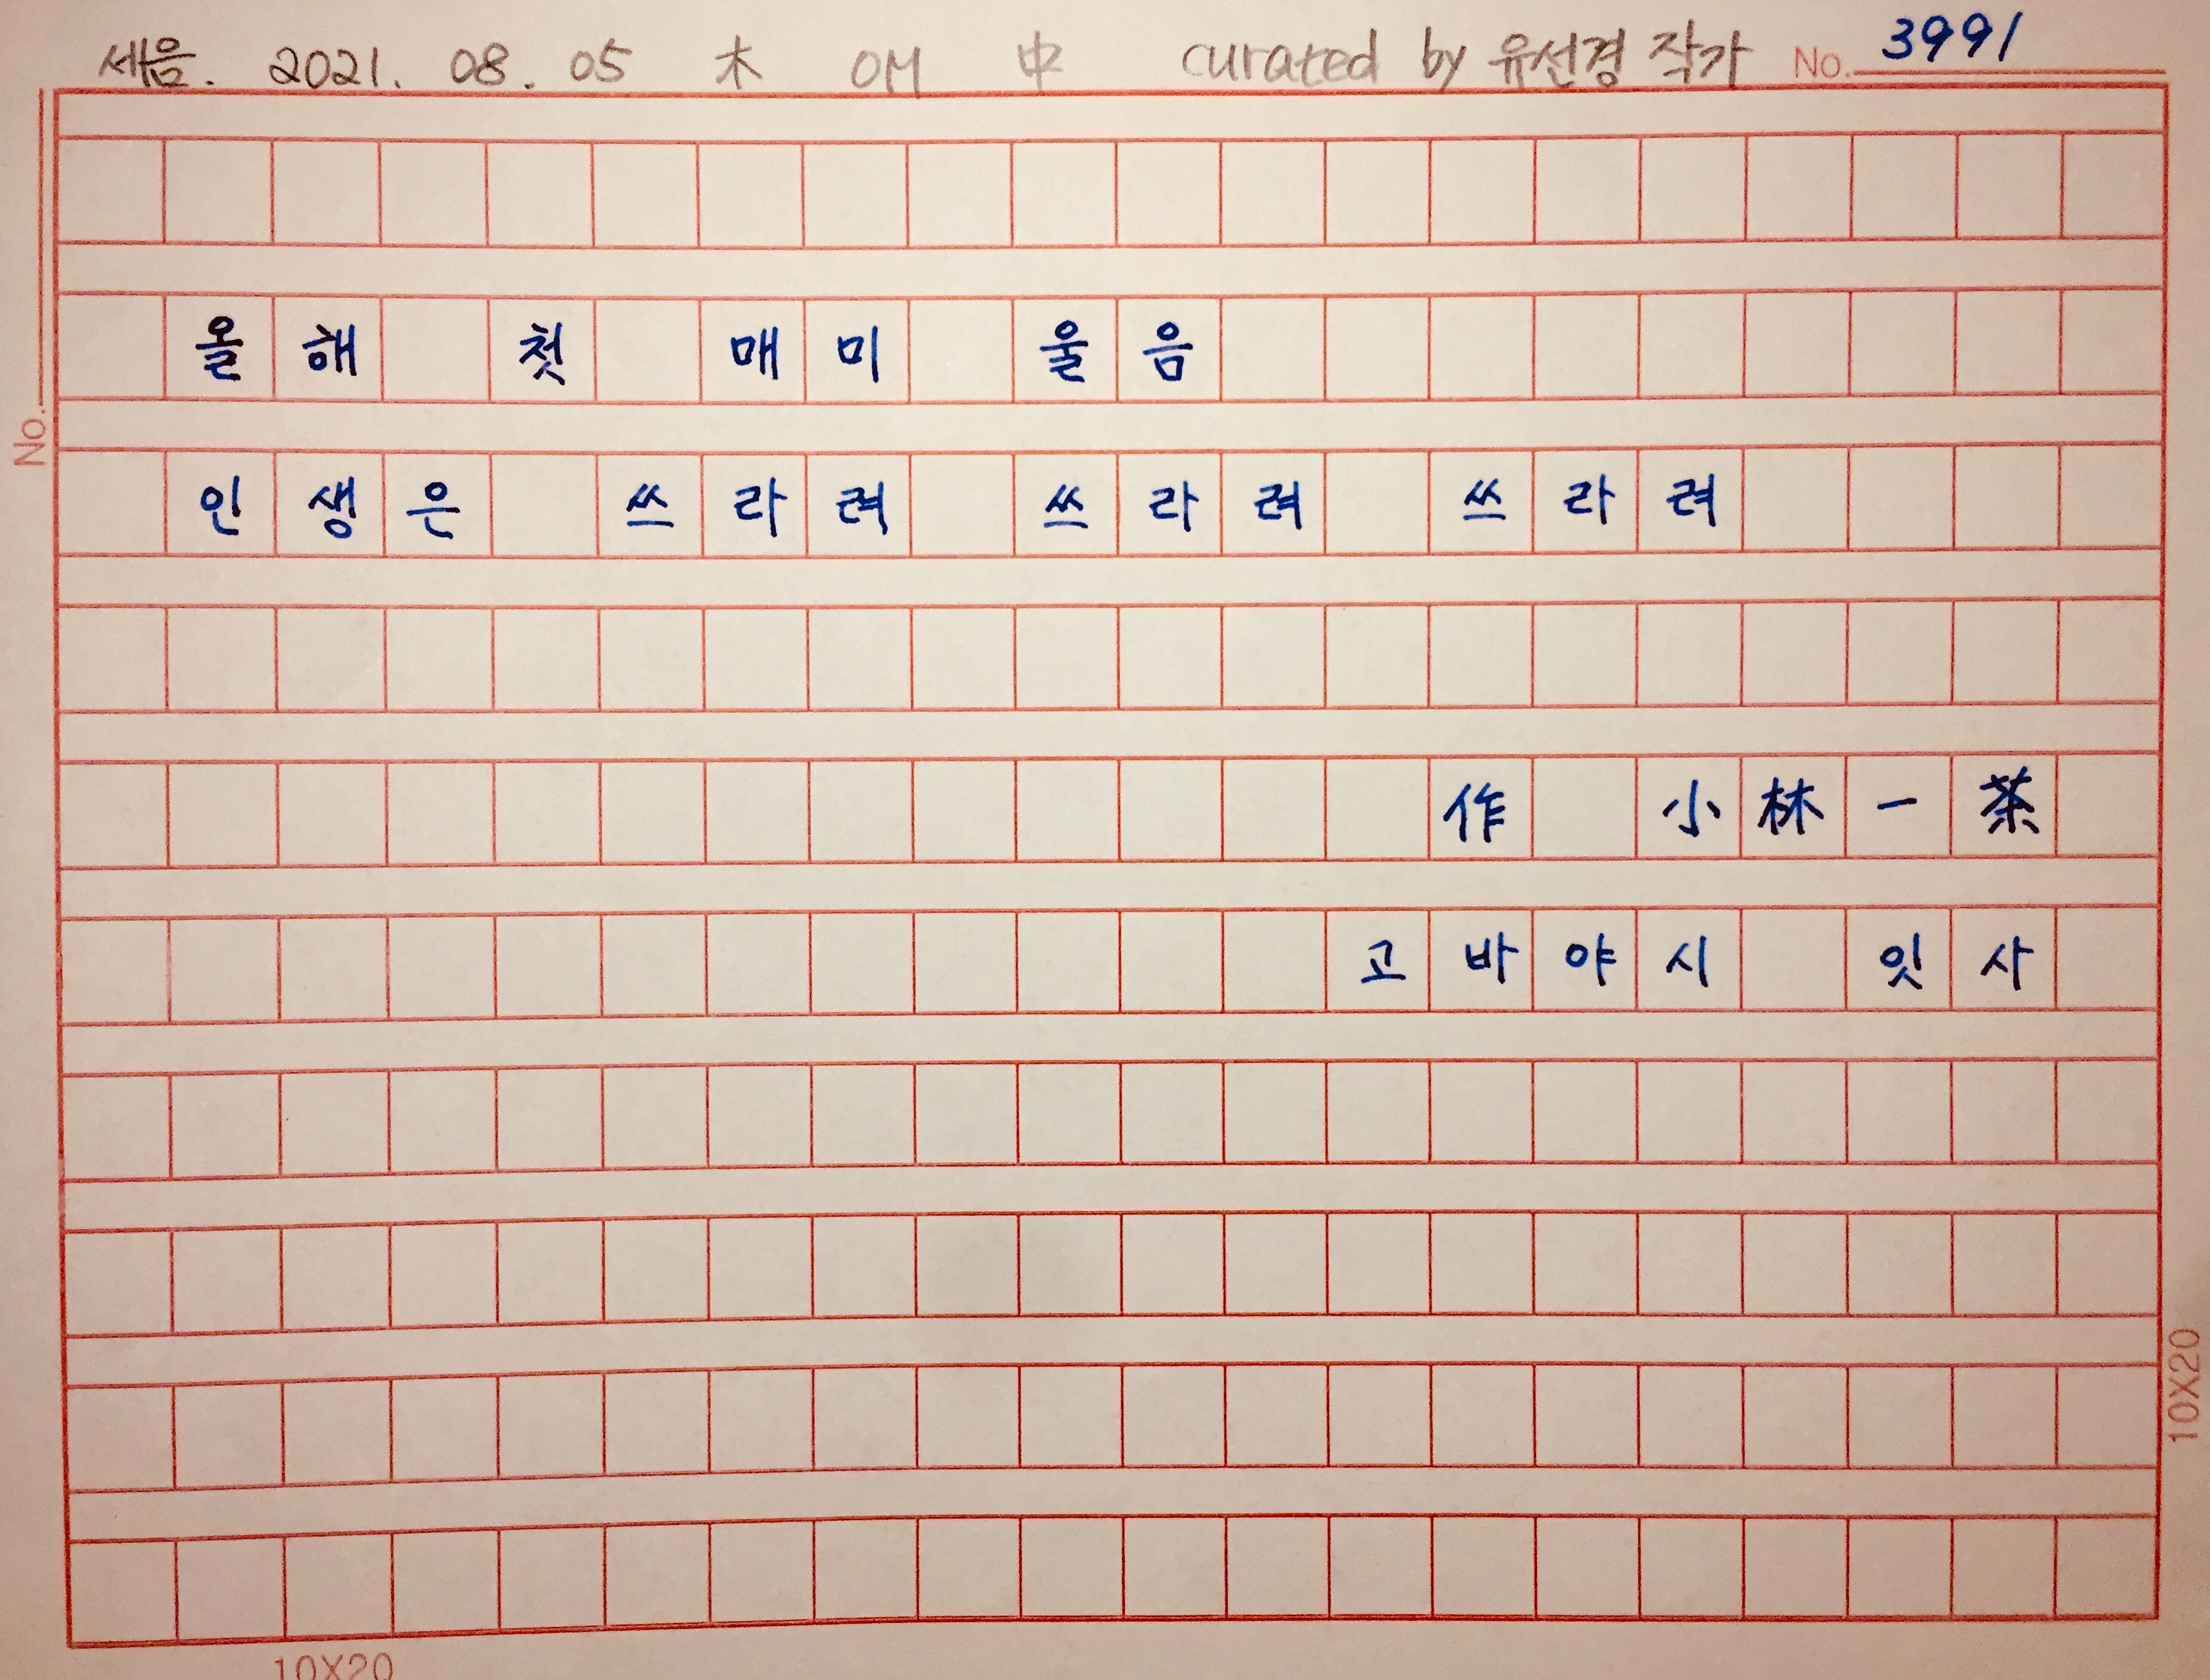 세음. 2021. 08. 05 木 OM 中 curated by 유선경 작가 No. 3991
No.
올해 첫 매미 울음
인생은 쓰라려 쓰라려 쓰라려
作 小林一茶
고바야시 잇사
10X20
10X20